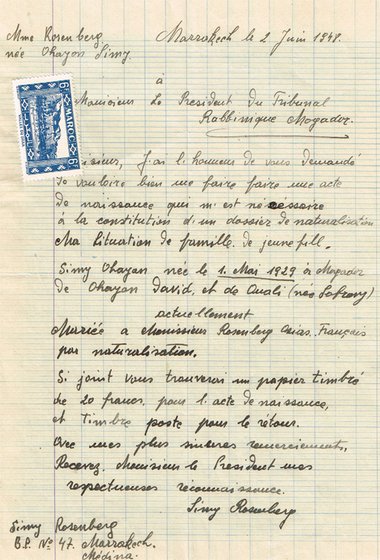 Mme Rosenberg
née Ohayon Simy.
Marrakech le 2 Juin 1948.
à
Monsieur Le President du Tribunal
Rabbinique Mogador.
MAROC
6F
6F
Monsieur, J'ai l'honneur de vous demandé
de vouloire bien me faire faire une acte
de naissance qui m'est nécessaire
à la constitution d'un dossier de naturalisation
Ma Situation de famille de jeune fill.
Simy Ohayon née le 1. Mai 1929 à Mogador
de Ohayon David, et de (née
actuellement
Mariée a Monsieur Rosenberg Français
par naturalisation.
Si joint vous trouverai un papier timbré
de 20 francs, pour l'acte de naissance,
et timbre poste pour le retour.
Avec mes plus sinceres remerciements.
Recevez, Monsieur le President mes
respectueuses reconnaissance.
Simy Rosenberg
Simy Rosenberg
B.P. No 47. Marrakech.
Médina.